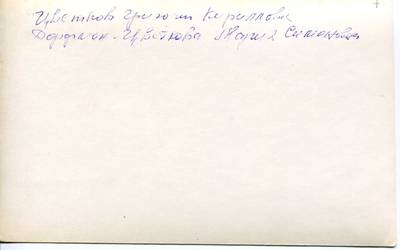 Цветков Григорий Кириллович
Дорфман-Цветкова Мария Симоновна